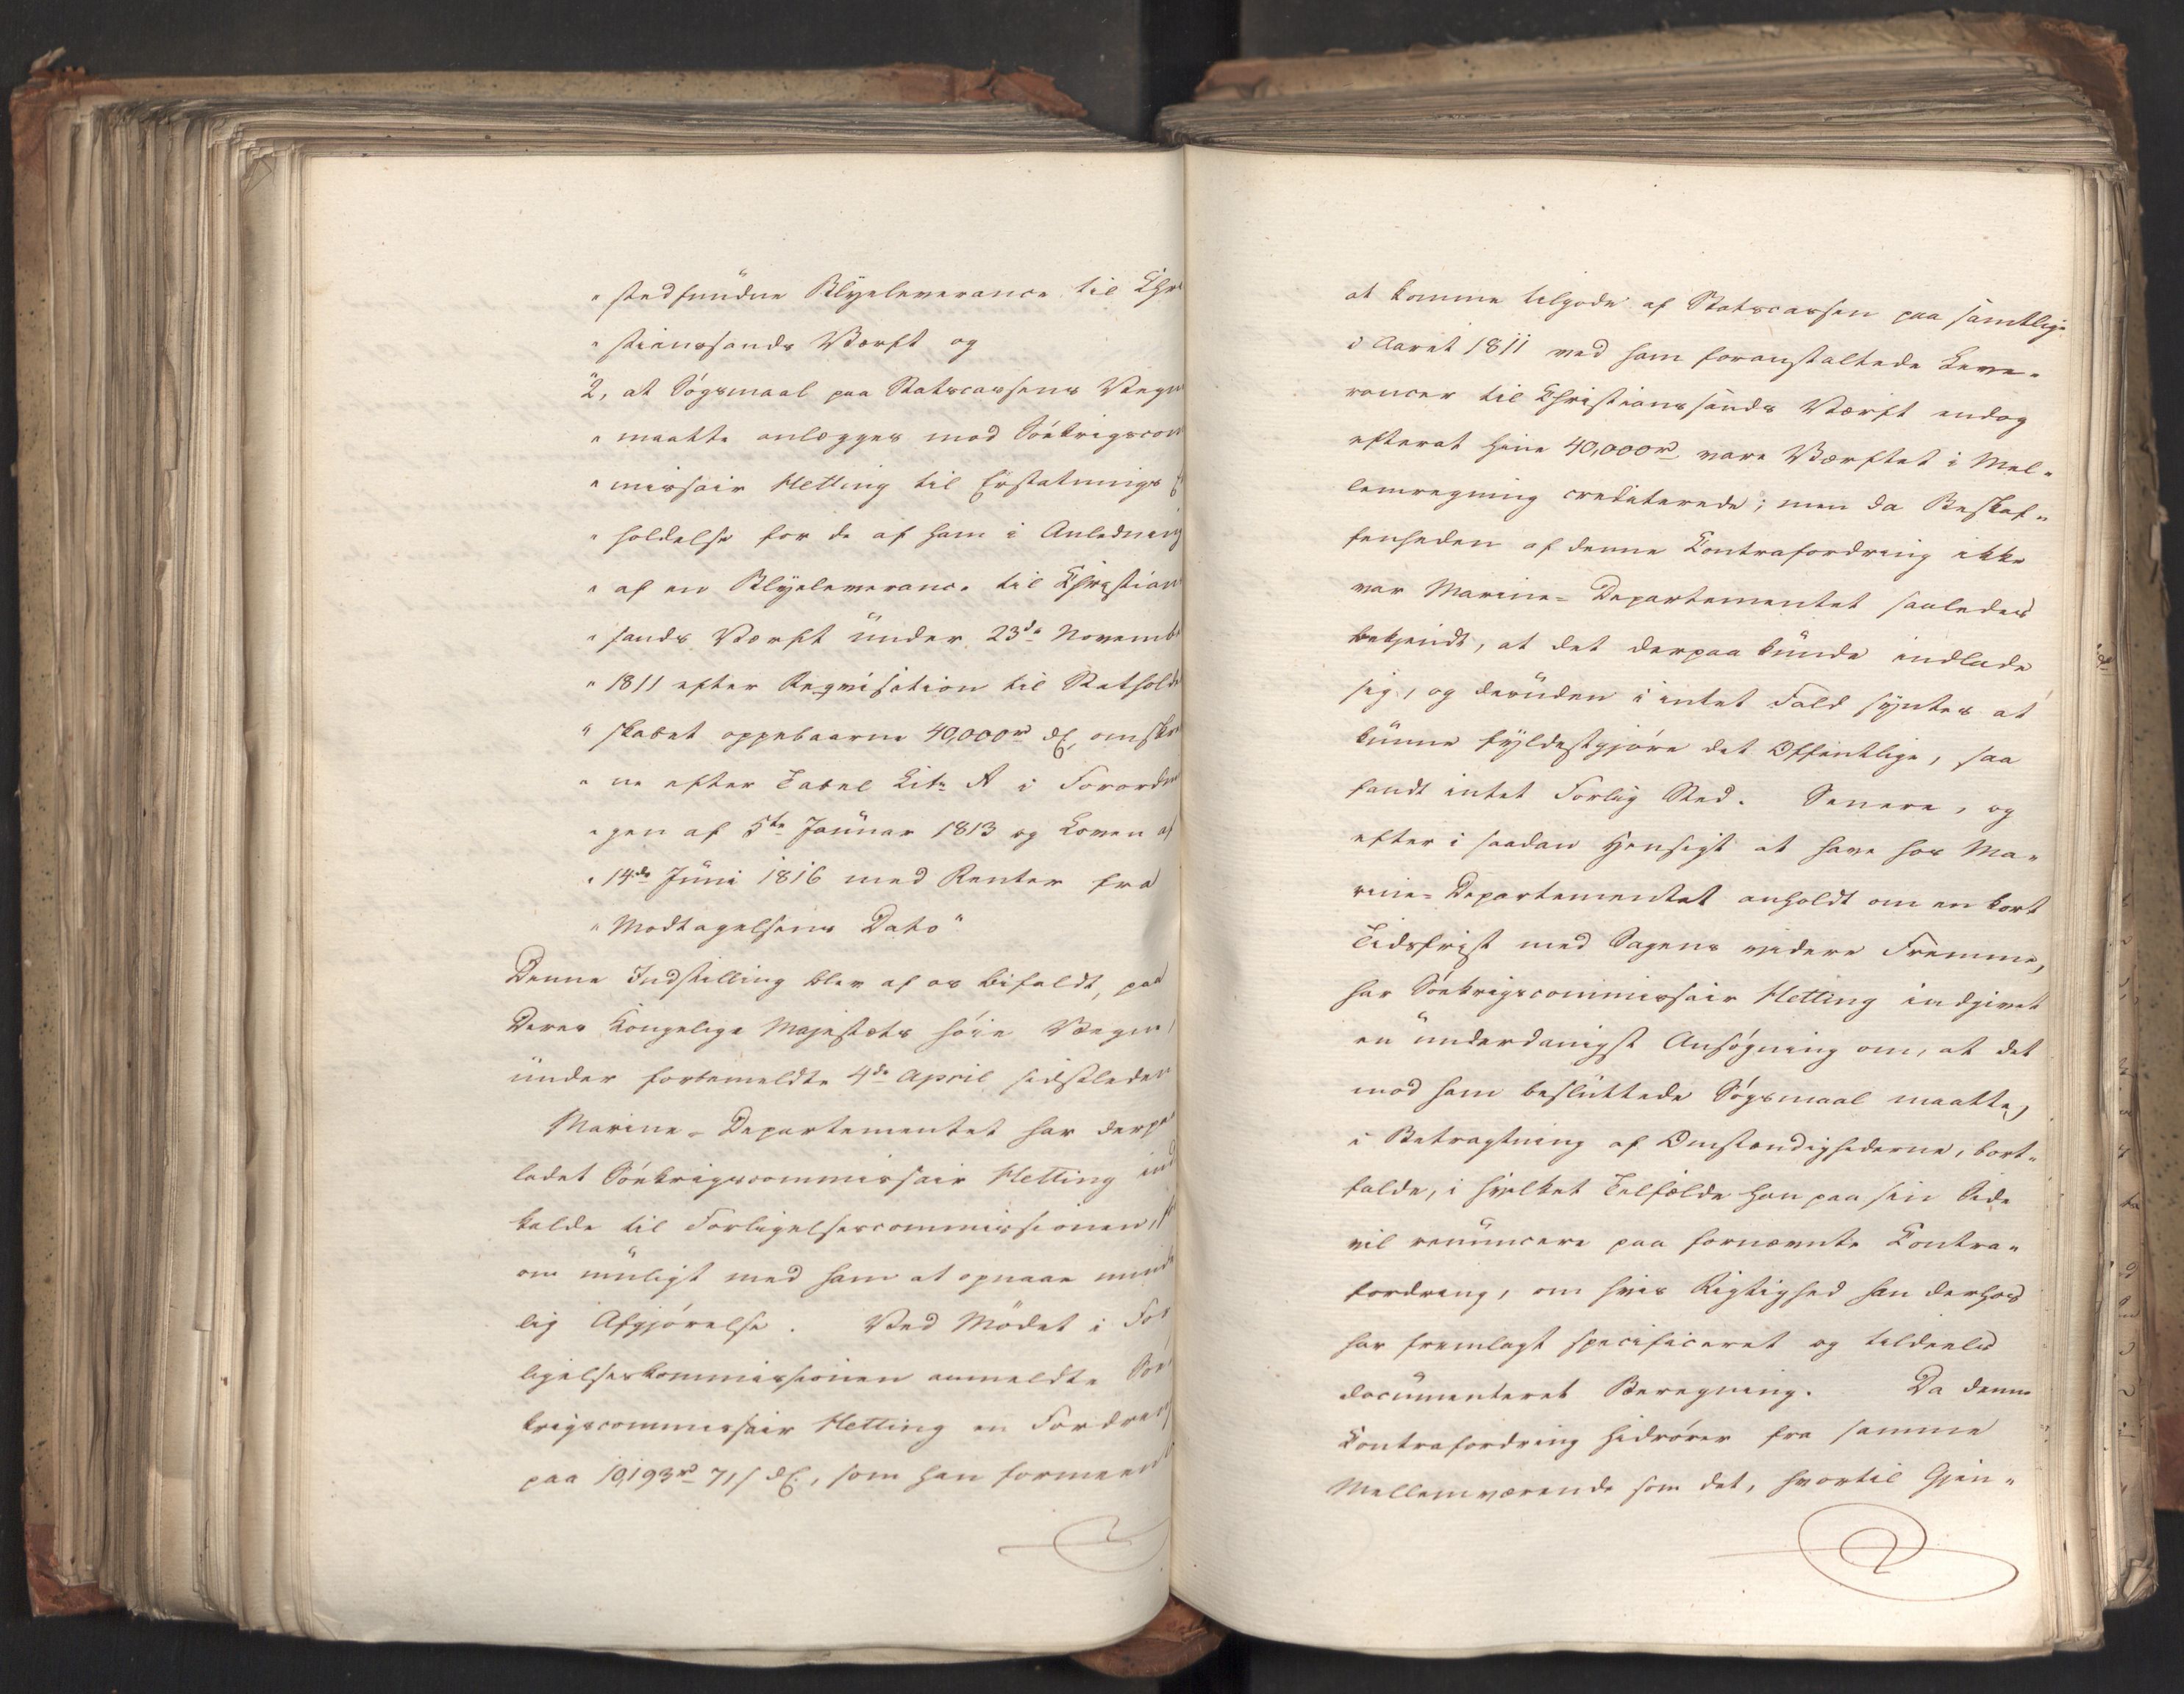 " stedfundne Blyeleverance til Chri
" stianssands Værft og
"2, at Søgsmaal paa Statscassens Vegn
" maatte anlægges mod Søekrigscom
" missair Hetting til Erstatnings
" holdelse for de af ham i Anledning
" af en Blyeleverance til Christian
" sands Værft under 23de Novemb
" 1811 efter Reqvisition til Statholde
" skabet oppebaarne 40,000 rd DC, omskre
" ne efter Tabel Litr A i Forordni
" gen af 5te Januar 1813 og Loven af
" 14de Juni 1816 med Renter fra
" Modtagelsens Dato"
Denne Indstilling blev af os bifaldt, paa
Deres Kongelige Majestæts høie Vegne,
under forbemeldte 4de April sidstleden
Marine-Departementet har derpaa
ladet Søekrigscommissair Hetting ind
kalde til Forligelsescommissionen, for
om muligt med ham at opnaae mind
lig Afgjørelse. Ved Mødet i For
ligelseskommissionen anmeldte Søe
krigscommissair Hetting en Fordring
paa 10,193 rd 71 s DC, som han formeent
at komme tilgode af Statscassen paa samtlige
i Aaret 1811 ved ham foranstaltede Leve-
rancer til Christianssands Værft endog
efterat hine 40,000 rd vare Værftet i Mel-
lemregning crediterede; men da Beskaf-
fenheden af denne Contrafordring ikke
var Marine-Departementet saaledes
bekjendt, at det derpaa kunde indlade
sig, og desuden i intet Fald syntes at
kunne fyldestgjøre det Offentlige, saa
fandt intet Forlig Sted. Senere, og
efter i saadan Hensigt at have hos Ma-
rine-Departementet anholdt om en kort
Tidsfrist med Sagens videre Fremme,
har Søekrigscommissair Hetting indgivet
en underdanigst Ansøgning om, at det
mod ham besluttede Søgsmaal maatte,
i Betragtning af Omstændighederne, bort-
falde, i hvilket Tilfælde han paa sin Side
vil renuncere paa fornævnte Contra-
fordring, om hvis Rigtighed han derhos
har fremlagt specificeret og tildeels
documenteret Beregning. Da denne
Contrafordring hidrører fra samme
Mellemværende som det, hvortil Gjen-